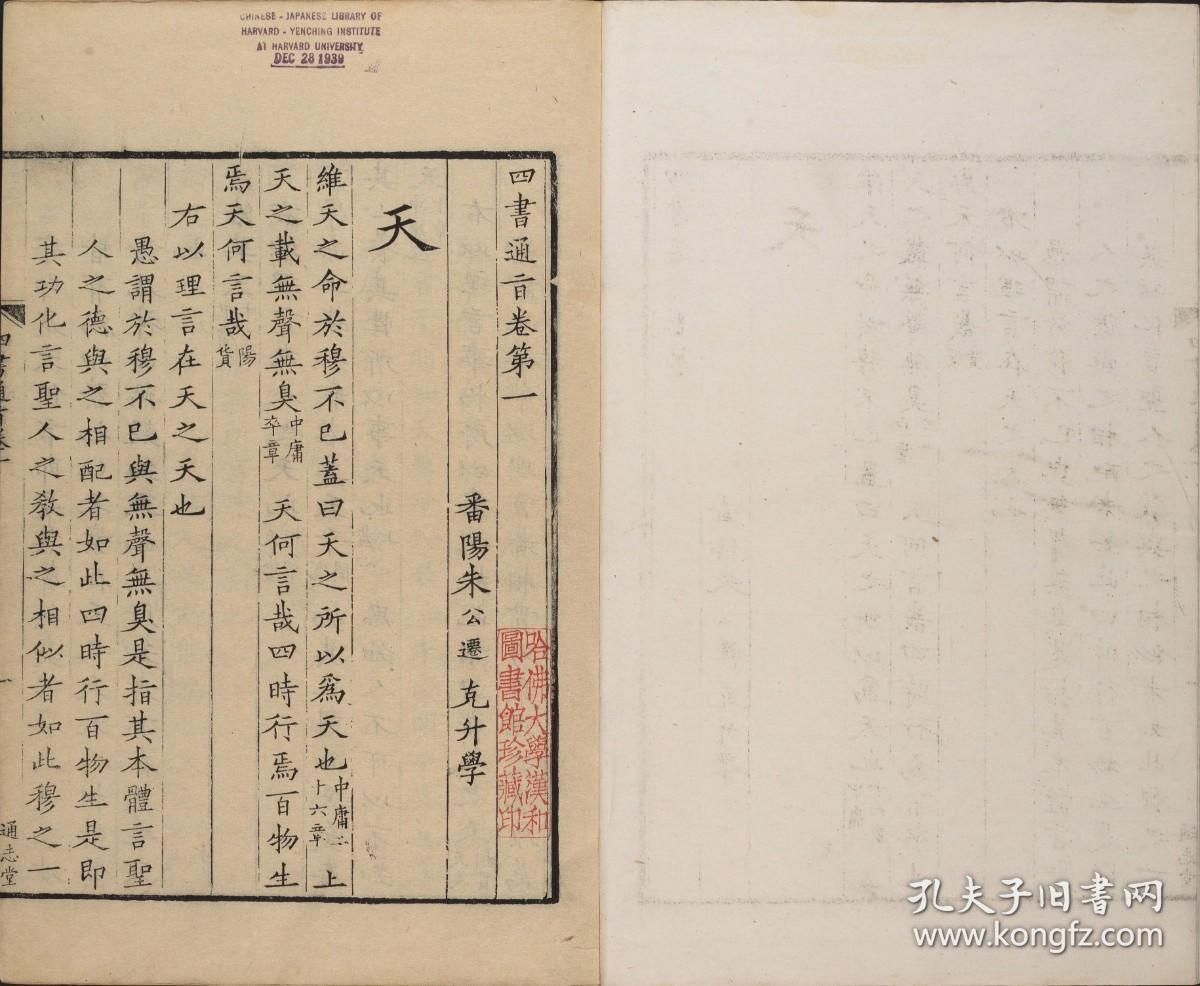 CHINESE - JAPANESE LIBRARY OF
HARVARD - YENCHING INSTITUTE
AT HARVARD UNIVERSITY
DEC 28 1939
四書通旨卷第一
番陽朱公遷克升學
哈佛大學漢和
圖書館珍藏印
天
維天之命於穆不已蓋曰天之所以爲天也中庸二十六章上
天之載無聲無臭中庸卒章天何言哉四時行焉百物生
焉天何言哉陽貨
右以理言在天之天也
愚謂於穆不已與無聲無臭是指其本體言聖
人之德與之相配者如此四時行百物生是即
其功化言聖人之敎與之相似者如此穆之一
通志堂
孔夫子旧书网
www.kongfz.com